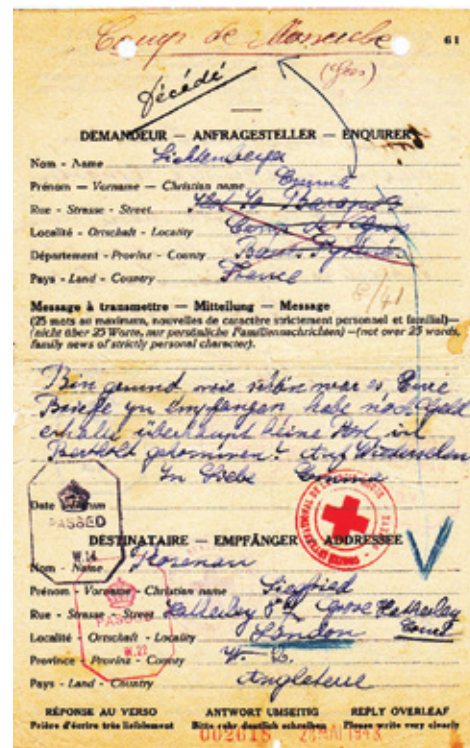 Camp de Masseube
61
(Gers)
Décédé
DEMANDEUR — ANFRAGESTELLER — ENQUIRER
Nom - Name Lichtenberger
Prénom — Vorname — Christian name Emma
Rue - Strasse - Street Ilot Baraque
Localité - Ortschaft - Locality Camp de
Département - Provinz - County Basses Pyrénées
Pays - Land - Country France
8/41
Message à transmettre — Mitteilung — Message
(25 mots au maximum, nouvelles de caractère strictement personnel et familial)—
(nicht über 25 Worte, nur persönliche Familiennachrichten)—(not over 25 words,
family news of strictly personal character).
Bin gesund wie schön war es, Eure
Briefe zu empfangen habe noch Geld
erhalten überhaupt keine Post
gekommen? Auf Wiedersehen
In Liebe Emma
Date
PASSED
W.14
DESTINATAIRE — EMPFÄNGER — ADDRESSEE
Nom - Name Rosenau
Prénom - Vorname - Christian name Siegfried
Rue - Strasse - Street Hatherley Grove Hatherley
Court
Localité - Ortschaft - Locality London
Province - Provinz - County
Pays - Land - Country Angleterre
PASSED
W.22
RÉPONSE AU VERSO ANTWORT UMSEITIG REPLY OVERLEAF
Prière d'écrire très lisiblement Bitte sehr deutlich schreiben Please write very clearly
002618 MAI 1943